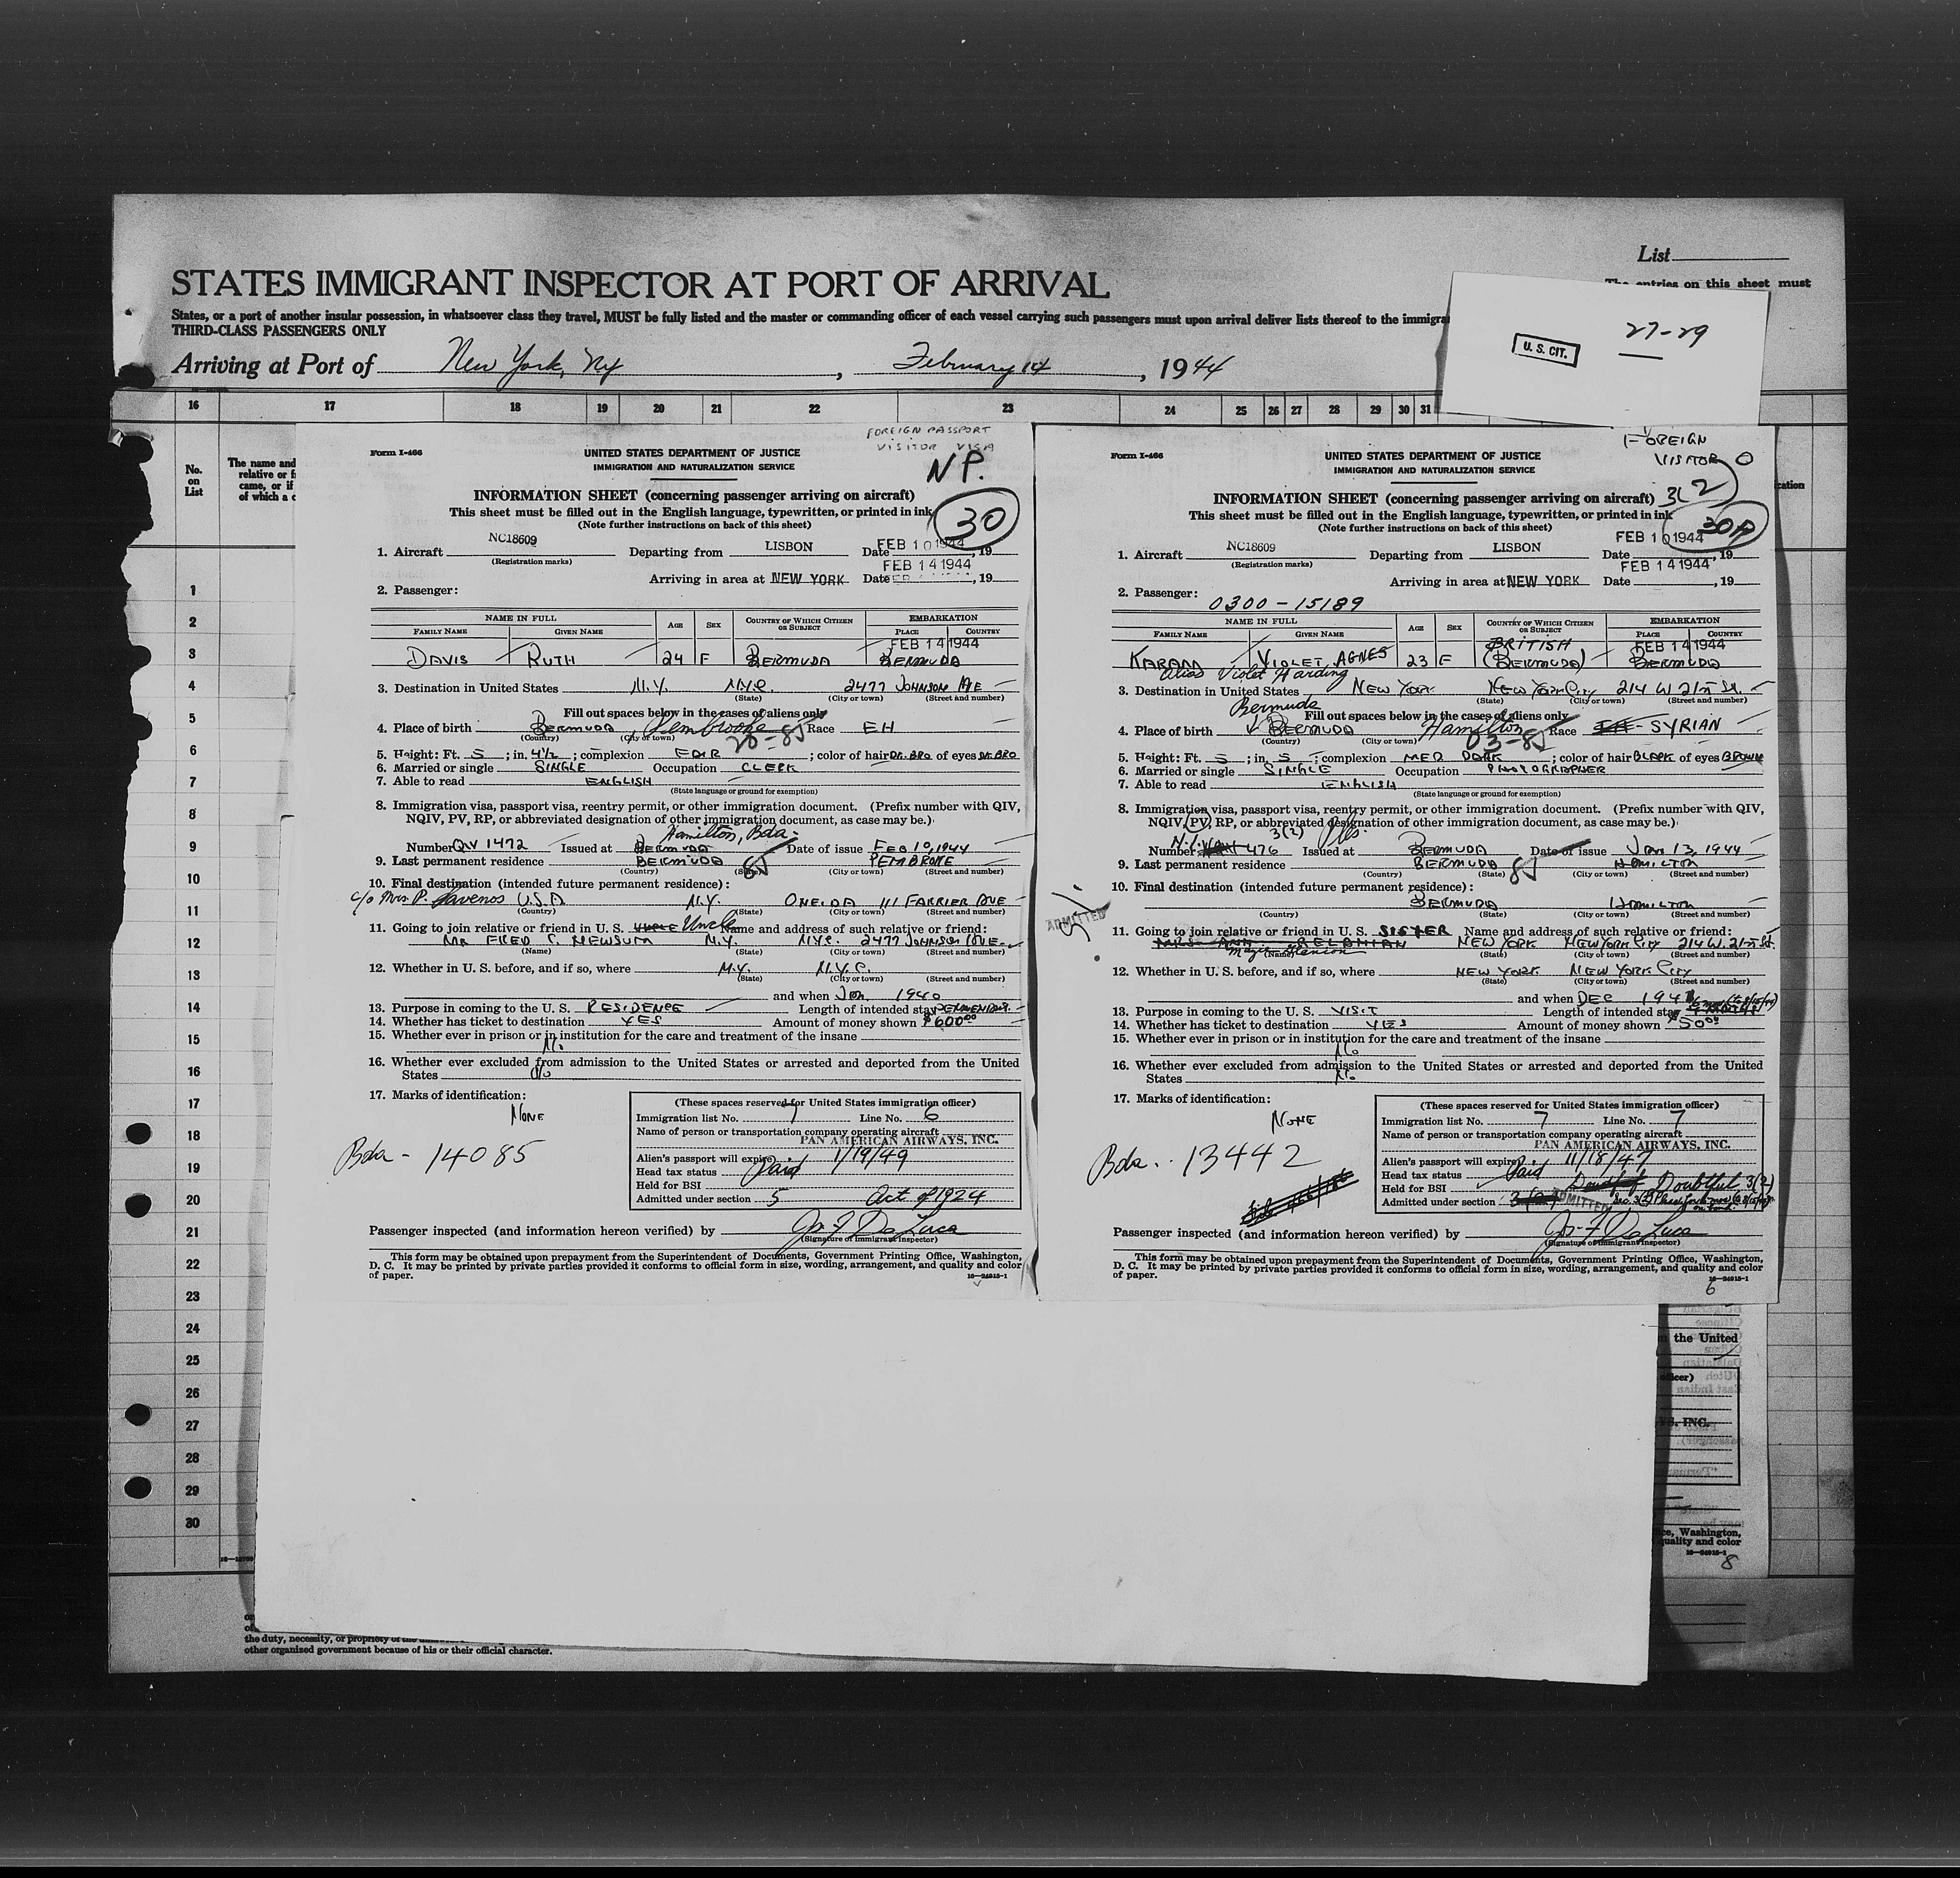 List
The entries on this sheet must
STATES IMMIGRANT INSPECTOR AT PORT OF ARRIVAL
States, or a port of another insular possession, in whatsoever class they travel, MUST be fully listed and the master or commanding officer of each vessel carrying such passengers must upon arrival deliver lists thereof to the immigra
THIRD-CLASS PASSENGERS ONLY
27-29
U. S. CIT.
Arriving at Port of New York, NY, February 14, 1944
16 17 18 19 20 21 22 23 24 25 26 27 28 29 30 31
No. on List
The name and
relative or f
came, or if
of which a c
1
2
3
4
5
6
7
8
9
10
11
12
13
14
15
16
17
18
19
20
21
22
23
24
25
26
27
28
29
30
FOREIGN PASSPORT
VISITOR VISA
NP.
30
Form I-466
UNITED STATES DEPARTMENT OF JUSTICE
IMMIGRATION AND NATURALIZATION SERVICE
INFORMATION SHEET (concerning passenger arriving on aircraft)
This sheet must be filled out in the English language, typewritten, or printed in ink
(Note further instructions on back of this sheet)
1. Aircraft NC18609 Departing from LISBON Date FEB 10 1944, 19
(Registration marks)
FEB 14 1944
Arriving in area at NEW YORK Date , 19
2. Passenger:
NAME IN FULL AGE SEX COUNTRY OF WHICH CITIZEN OR SUBJECT EMBARKATION
FAMILY NAME GIVEN NAME PLACE COUNTRY
FEB 14 1944
DAVIS RUTH 24 F BERMUDA BERMUDA
3. Destination in United States N.Y. N.Y.C. 2477 JOHNSON AVE
(State) (City or town) (Street and number)
Fill out spaces below in the cases of aliens only
4. Place of birth BERMUDA, Pembroke Race EH
(Country) (City or town)
5. Height: Ft. 5; in. 4½; complexion FAIR; color of hair DK. BRO of eyes DK. BRO
6. Married or single SINGLE Occupation CLERK
7. Able to read ENGLISH
(State language or ground for exemption)
8. Immigration visa, passport visa, reentry permit, or other immigration document. (Prefix number with QIV,
NQIV, PV, RP, or abbreviated designation of other immigration document, as case may be.)
Hamilton, Bda.
Number QIV 1472 Issued at BERMUDA Date of issue FEB 10, 1944
9. Last permanent residence BERMUDA 85 PEMBROKE
(Country) (State) (City or town) (Street and number)
10. Final destination (intended future permanent residence):
c/o Mrs P. U.S.A N.Y. ONEIDA 111 FARRIER AVE
(Country) (State) (City or town) (Street and number)
11. Going to join relative or friend in U. S. Uncle Name and address of such relative or friend:
MR FRED C. NEWSUM N.Y. NYC. 2477 JOHNSON AVE.
(Name) (State) (City or town) (Street and number)
12. Whether in U. S. before, and if so, where N.Y. N.Y.C.
(State) (City or town) (Street and number)
and when JAN. 1940
13. Purpose in coming to the U. S. RESIDENCE Length of intended stay PERMENENT
14. Whether has ticket to destination YES Amount of money shown $600.00
15. Whether ever in prison or in institution for the care and treatment of the insane
No
16. Whether ever excluded from admission to the United States or arrested and deported from the United
States No
17. Marks of identification:
NONE
Bda - 14085
(These spaces reserved for United States immigration officer)
Immigration list No. 7 Line No. 6
Name of person or transportation company operating aircraft
PAN AMERICAN AIRWAYS, INC.
Alien's passport will expire 1/19/49
Head tax status Paid
Held for BSI
Admitted under section 5 Act of 1924
Passenger inspected (and information hereon verified) by Jos. F De Luca
(Signature of immigrant inspector)
This form may be obtained upon prepayment from the Superintendent of Documents, Government Printing Office, Washington,
D. C. It may be printed by private parties provided it conforms to official form in size, wording, arrangement, and quality and color
of paper.
16-24915-1
FOREIGN
VISITOR
3(2)
30
Form I-466
UNITED STATES DEPARTMENT OF JUSTICE
IMMIGRATION AND NATURALIZATION SERVICE
INFORMATION SHEET (concerning passenger arriving on aircraft)
This sheet must be filled out in the English language, typewritten, or printed in ink
(Note further instructions on back of this sheet)
1. Aircraft NC18609 Departing from LISBON Date FEB 10 1944, 19
(Registration marks)
FEB 14 1944
Arriving in area at NEW YORK Date , 19
2. Passenger:
0300-15189
NAME IN FULL AGE SEX COUNTRY OF WHICH CITIZEN OR SUBJECT EMBARKATION
FAMILY NAME GIVEN NAME PLACE COUNTRY
BRITISH FEB 14 1944
KARAM VIOLET AGNES 23 F (BERMUDA) BERMUDA
alias Violet Harding
3. Destination in United States NEW YORK NEW YORK CITY 214 W 21st St.
(State) (City or town) (Street and number)
Bermuda
Fill out spaces below in the cases of aliens only
4. Place of birth BERMUDA Hamilton Race SYRIAN
(Country) (City or town)
03-85
5. Height: Ft. 5; in. 5; complexion MED DARK; color of hair BLACK of eyes BROWN
6. Married or single SINGLE Occupation PHOTOGRAPHER
7. Able to read ENGLISH
(State language or ground for exemption)
8. Immigration visa, passport visa, reentry permit, or other immigration document. (Prefix number with QIV,
NQIV, PV, RP, or abbreviated designation of other immigration document, as case may be.)
3(2)
Number 476 Issued at BERMUDA Date of issue JAN 13, 1944
9. Last permanent residence BERMUDA 85 HAMILTON
(Country) (State) (City or town) (Street and number)
10. Final destination (intended future permanent residence):
BERMUDA HAMILTON
(Country) (State) (City or town) (Street and number)
ADMITTED
11. Going to join relative or friend in U. S. SISTER Name and address of such relative or friend:
NEW YORK NEW YORK CITY 214 W. 21st St.
(Name) (State) (City or town) (Street and number)
12. Whether in U. S. before, and if so, where NEW YORK NEW YORK CITY
(State) (City or town) (Street and number)
and when DEC 1941
13. Purpose in coming to the U. S. VISIT Length of intended stay
14. Whether has ticket to destination YES Amount of money shown $50.00
15. Whether ever in prison or in institution for the care and treatment of the insane
No
16. Whether ever excluded from admission to the United States or arrested and deported from the United
States No
17. Marks of identification:
NONE
Bda. 13442
(These spaces reserved for United States immigration officer)
Immigration list No. 7 Line No. 7
Name of person or transportation company operating aircraft
PAN AMERICAN AIRWAYS, INC.
Alien's passport will expire 11/18/47
Head tax status Paid
Held for BSI Doubtful 3(2)
Admitted under section ADMITTED
Passenger inspected (and information hereon verified) by Jos. F De Luca
(Signature of immigrant inspector)
This form may be obtained upon prepayment from the Superintendent of Documents, Government Printing Office, Washington,
D. C. It may be printed by private parties provided it conforms to official form in size, wording, arrangement, and quality and color
of paper.
16-24915-1
6
the United
icer)
S. INC.
ce, Washington,
quality and color
16-24915-1
8
the duty, necessity, or propriety of the
other organized government because of his or their official character.